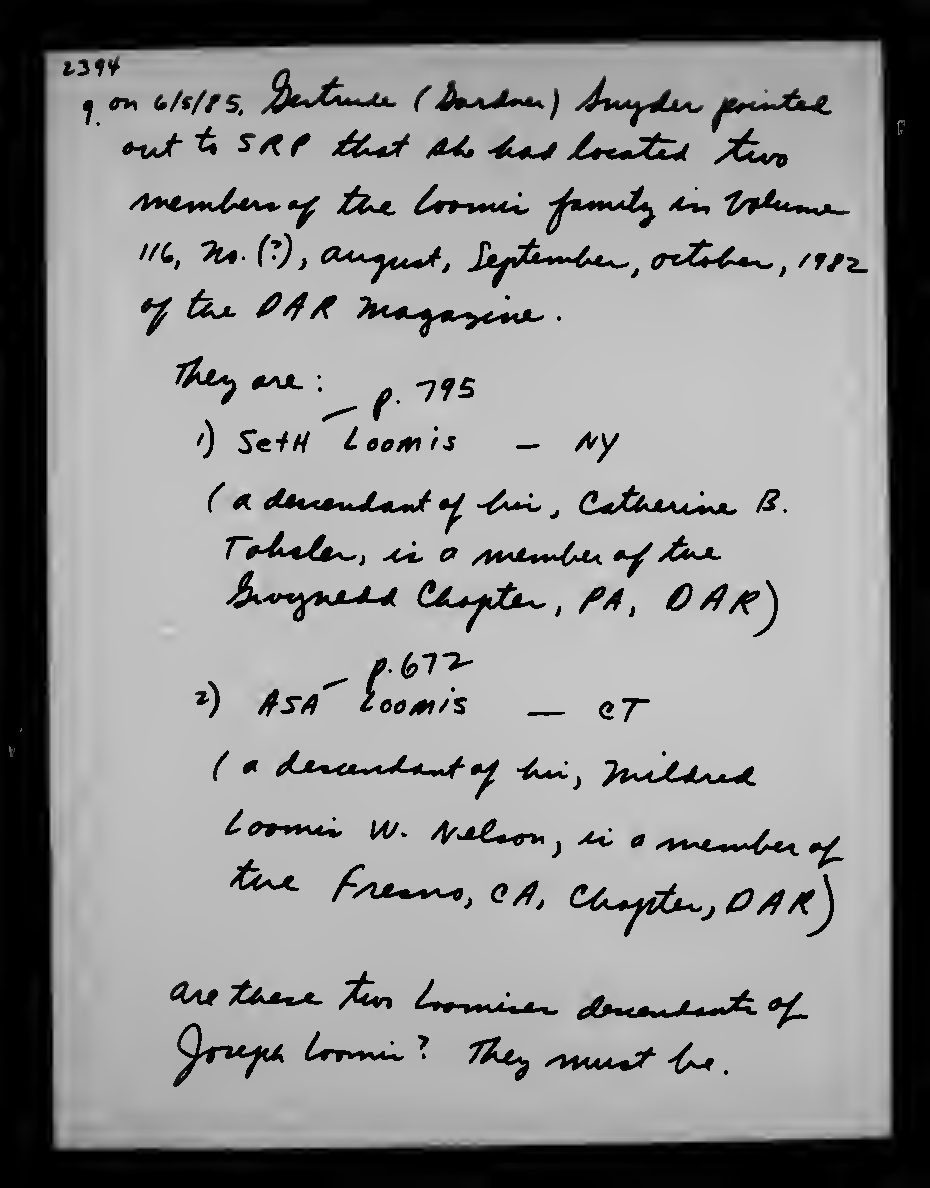 2394
9. on 6/5/85, Gertrude (Gardner) Snyder pointed
out to SRP that she had located two
members of the Loomis family in Volume
116, No. (?), August, September, October, 1982
of the DAR Magazine.
They are:
p. 795
1) Seth Loomis — NY
(a descendant of his, Catherine B.
Tobsler, is a member of the
Gwynedd Chapter, PA, DAR)
p. 672
2) ASA Loomis — CT
(a descendant of his, Mildred
Loomis W. Nelson, is a member of
the Fresno, CA, Chapter, DAR)
are these two Loomises descendants of
Joseph Loomis? They must be.